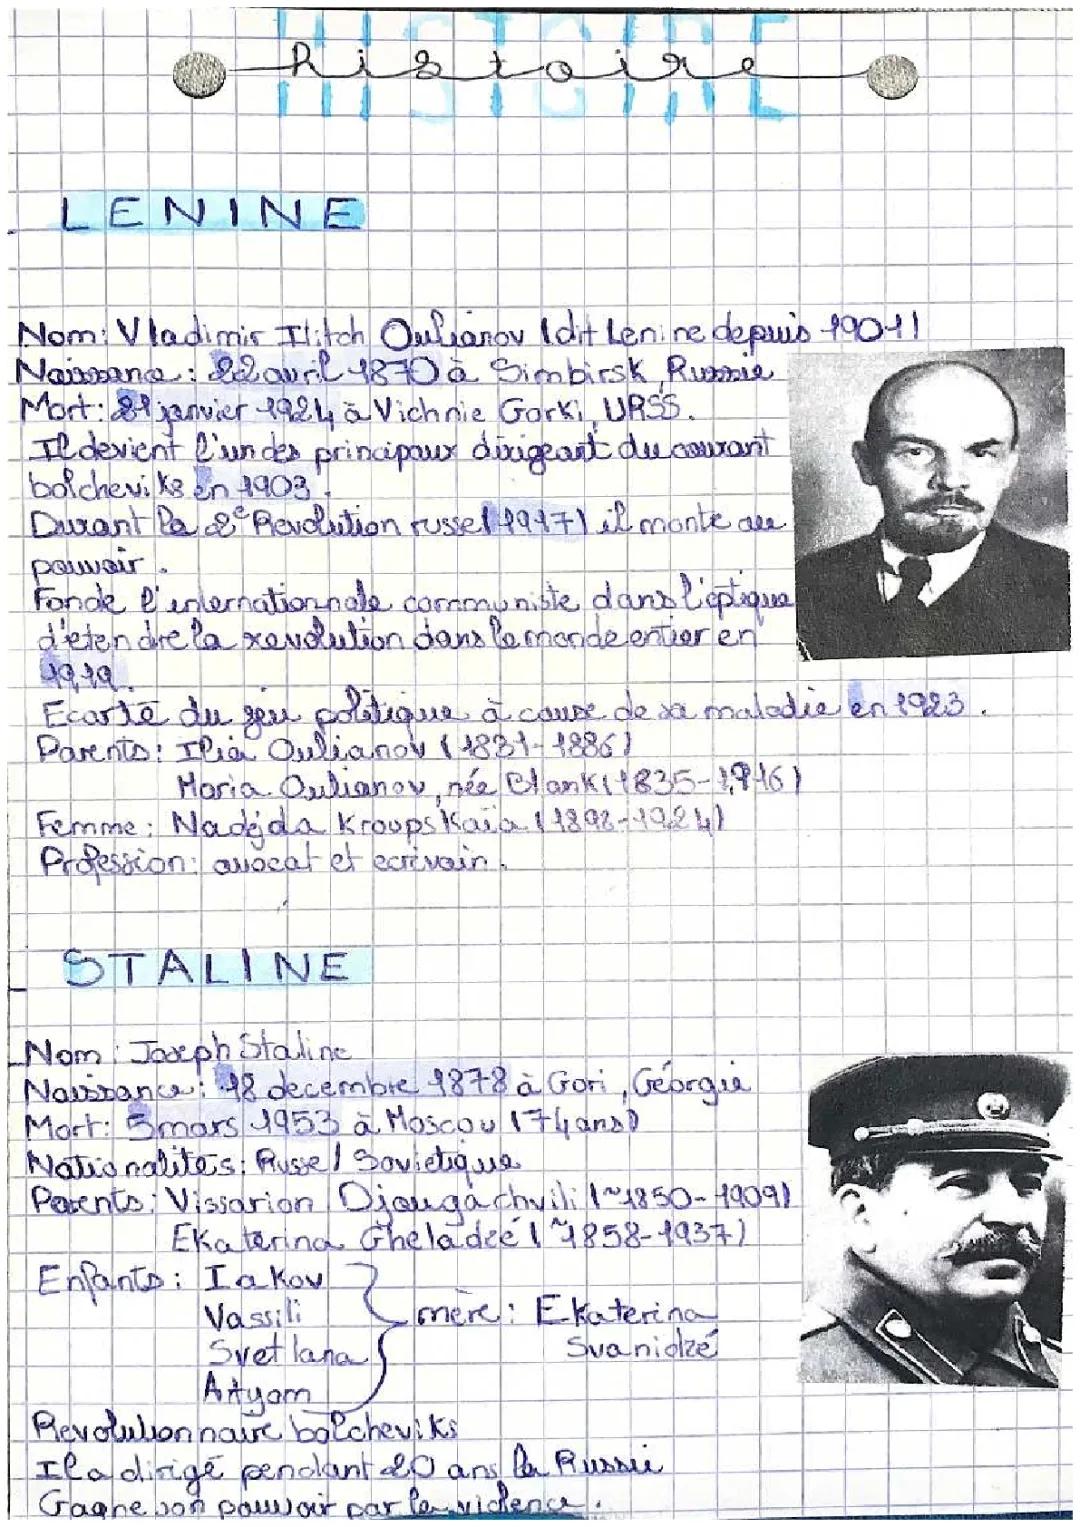 HISTOIRE
histoire
LENINE
Nom: Vladimir Ilitch Oulianov (dit Lenine depuis 1901)
Naissance: 22 avril 1870 à Simbirsk, Russie
Mort: 21 janvier 1924 à Vichnie Gorki, URSS.
Il devient l'un des principaux dirigeant du courant
bolcheviks en 1903.
Durant la 2e Revolution russe (1917) il monte au
pouvoir.
Fonde l'internationnale communiste dans l'optique
d'etendre la revolution dans le monde entier en
1919.
Ecarté du jeu politique à cause de sa maladie en 1923.
Parents: Ilia Oulianov (1831-1886)
Maria Oulianov, née Blank (1835-1916)
Femme: Nadéjda Kroupskaïa (1898-1924)
Profession: avocat et ecrivain.
STALINE
Nom: Joseph Staline
Naissance: 18 decembre 1878 à Gori, Géorgie
Mort: 5 mars 1953 à Moscou (74 ans)
Nationalités: Russe / Sovietique
Parents: Vissarion Djougachvili (~1850-1909)
Ekaterina Gheladzé (~1858-1937)
Enfants: Iakov
Vassili mère: Ekaterina
Svetlana Svanidzé
Artyom
Revolutionnaire bolcheviks
Il a dirigé pendant 20 ans la Russie
Gagne son pouvoir par la violence.